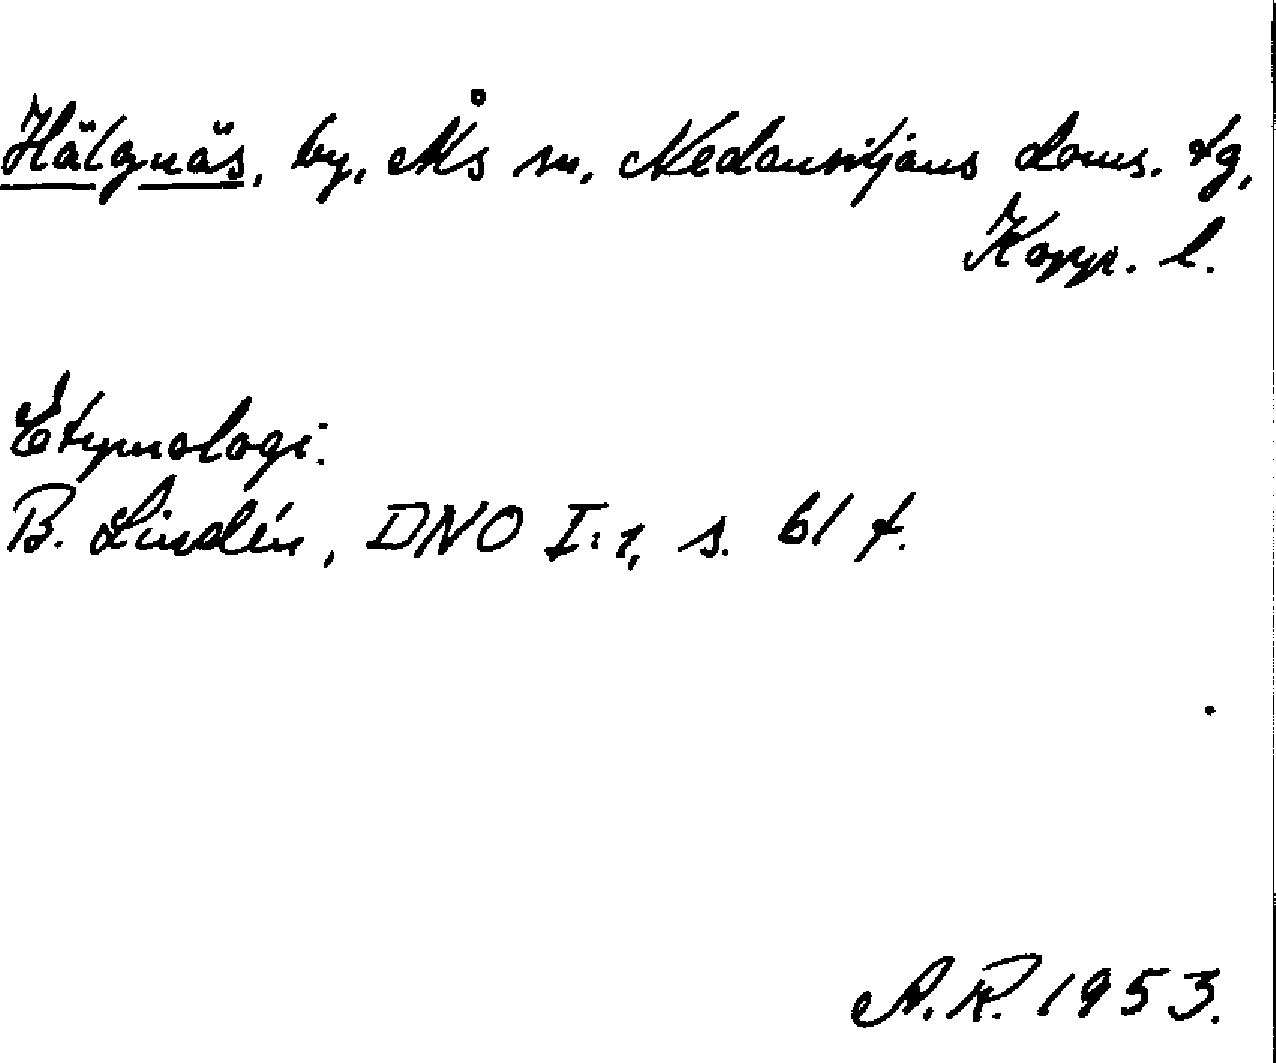 Hälgnäs, by, Ås sn, Nedansiljans doms. tg,
Kopp. l.
Etymologi:
B. Lindén, DNO I:1, s. 61 f.
A.R. 1953.